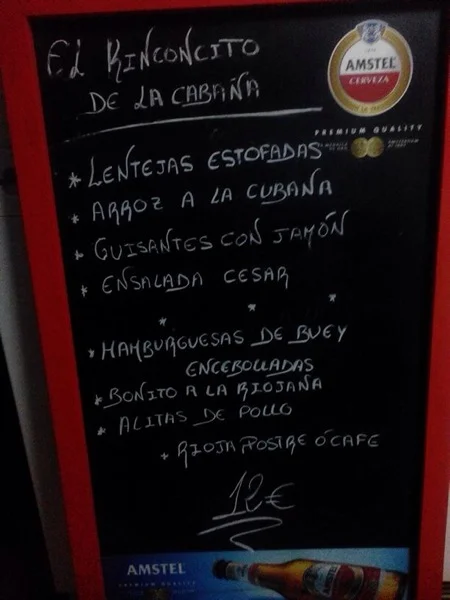 EL RINCONCITO
DE LA CABAÑA
AMSTEL
CERVEZA
PREMIUM QUALITY
* LENTEJAS ESTOFADAS
* ARROZ A LA CUBANA
* GUISANTES CON JAMÓN
* ENSALADA CESAR
* * *
* HAMBURGUESAS DE BUEY
ENCEBOLLADAS
* BONITO A LA RIOJANA
* ALITAS DE POLLO
* RIOJA, POSTRE Ó CAFE
12€
AMSTEL
PREMIUM QUALITY